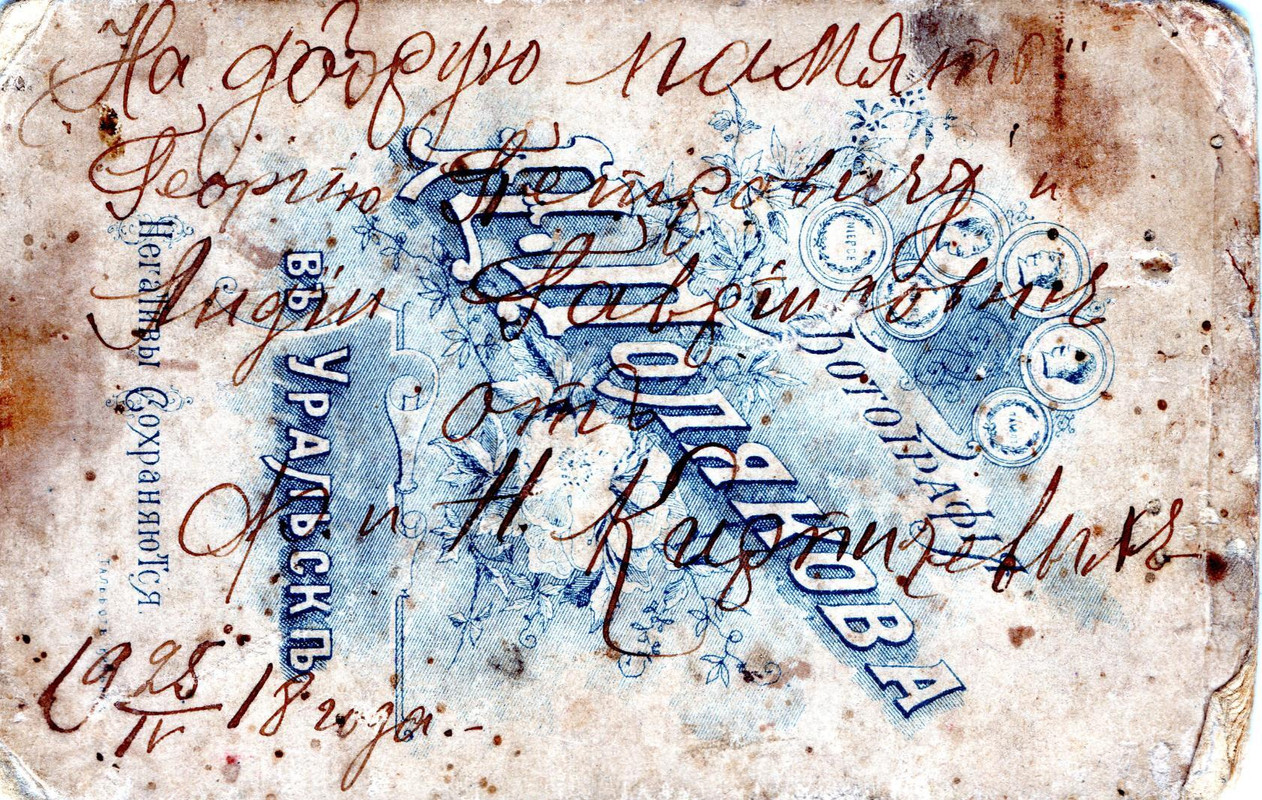 На добрую память
Георгію Петровичу и
Лидіи Гавриловнѣ
отъ
А и Н. Киртичевыхъ
19 25/IV 18 года.-
Фотографія
П. Полякова
въ Уральскѣ
Негативы Сохраняются